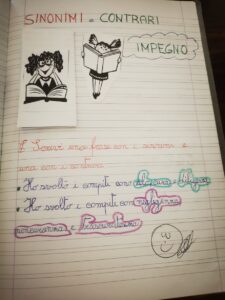 SINONIMI e CONTRARI
IMPEGNO
Scrivi una frase con i sinonimi e
una con i contrari
• Ho svolto i compiti con e diligenza
• Ho svolto i compiti con negligenza
noncuranza e trascuratezza